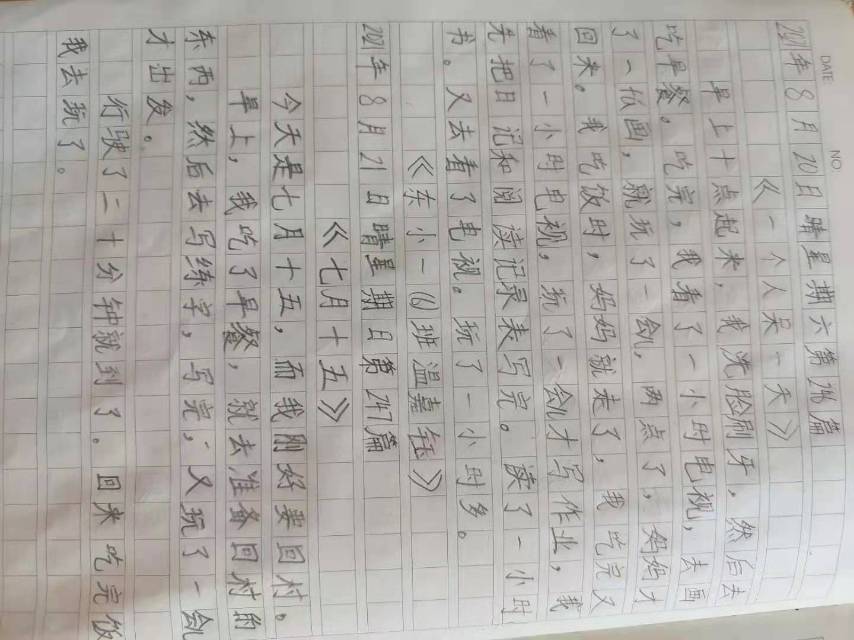 DATE
NO
2021年8月20日 晴 星期六 第246篇
《一个人呆一天》
早上十点起来，我洗脸刷牙，然后去
吃早餐。吃完，我看了一小时电视，去画
了一张画，就玩了一会儿，两点了，妈妈才
回来。我吃饭时，妈妈就走了，我吃完又
看了一小时电视，玩了一会儿才写作业，我
先把日记和阅读记录表写完。读了一小时
书。又去看了电视。玩了一小时多。
《东小一(6)班温嘉钰》
2021年8月21日 晴 星期日 第247篇
《七月十五》
今天是七月十五，而我刚好要回村。
早上，我吃了早餐，就去准备回村的
东西，然后去写练字，写完，又玩了一会儿
才出发。
行驶了二十分钟就到了。回来吃完饭
我去玩了。